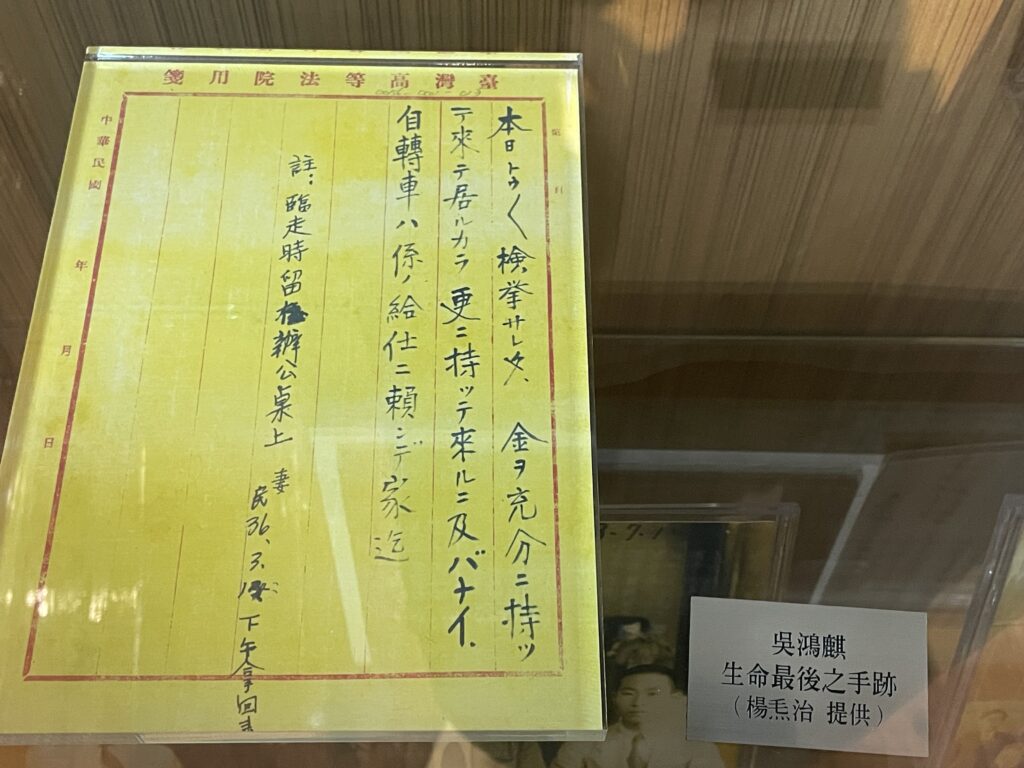 臺灣高等法院用箋
本日トウ〱検挙サレタ 金ヲ充分ニ持ッ
テ來テ居ルカラ更ニ持ッテ來ルニ及バナイ.
自轉車ハ係ノ給仕ニ賴ンデ家迄
註：臨走時留 辦公桌上 妻
民36.3. 下午拿回
中華民國 年 月 日
吳鴻麒
生命最後之手跡
（楊𤆬治 提供）